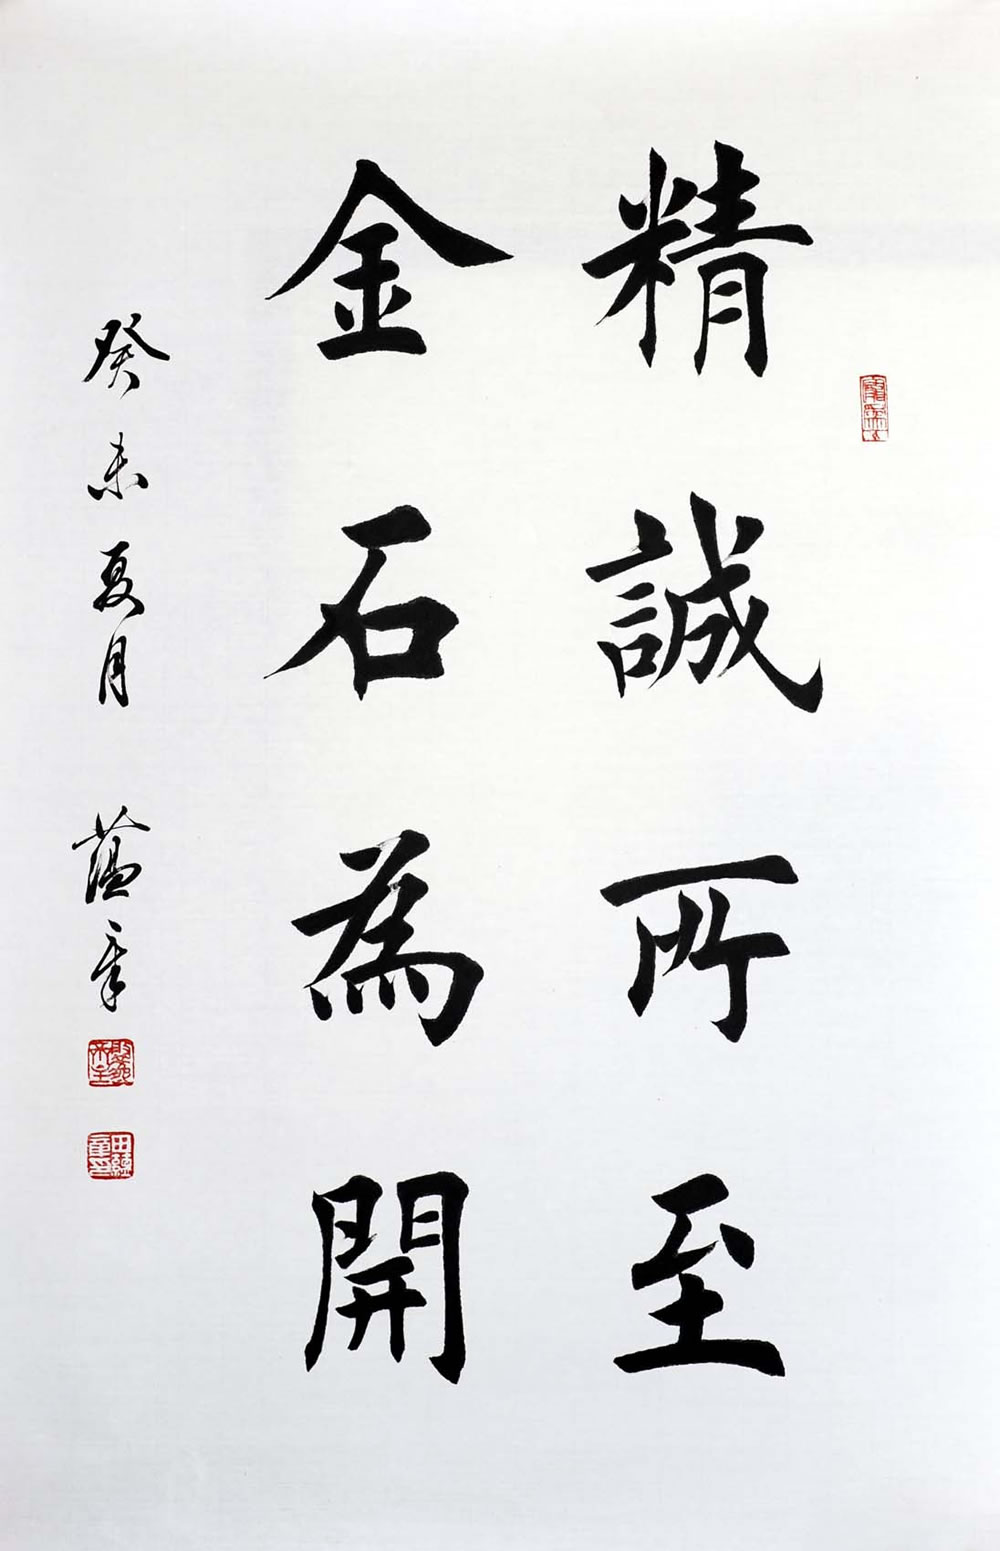 精誠所至
金石為開
癸未夏月 蘊章
田蘊章印